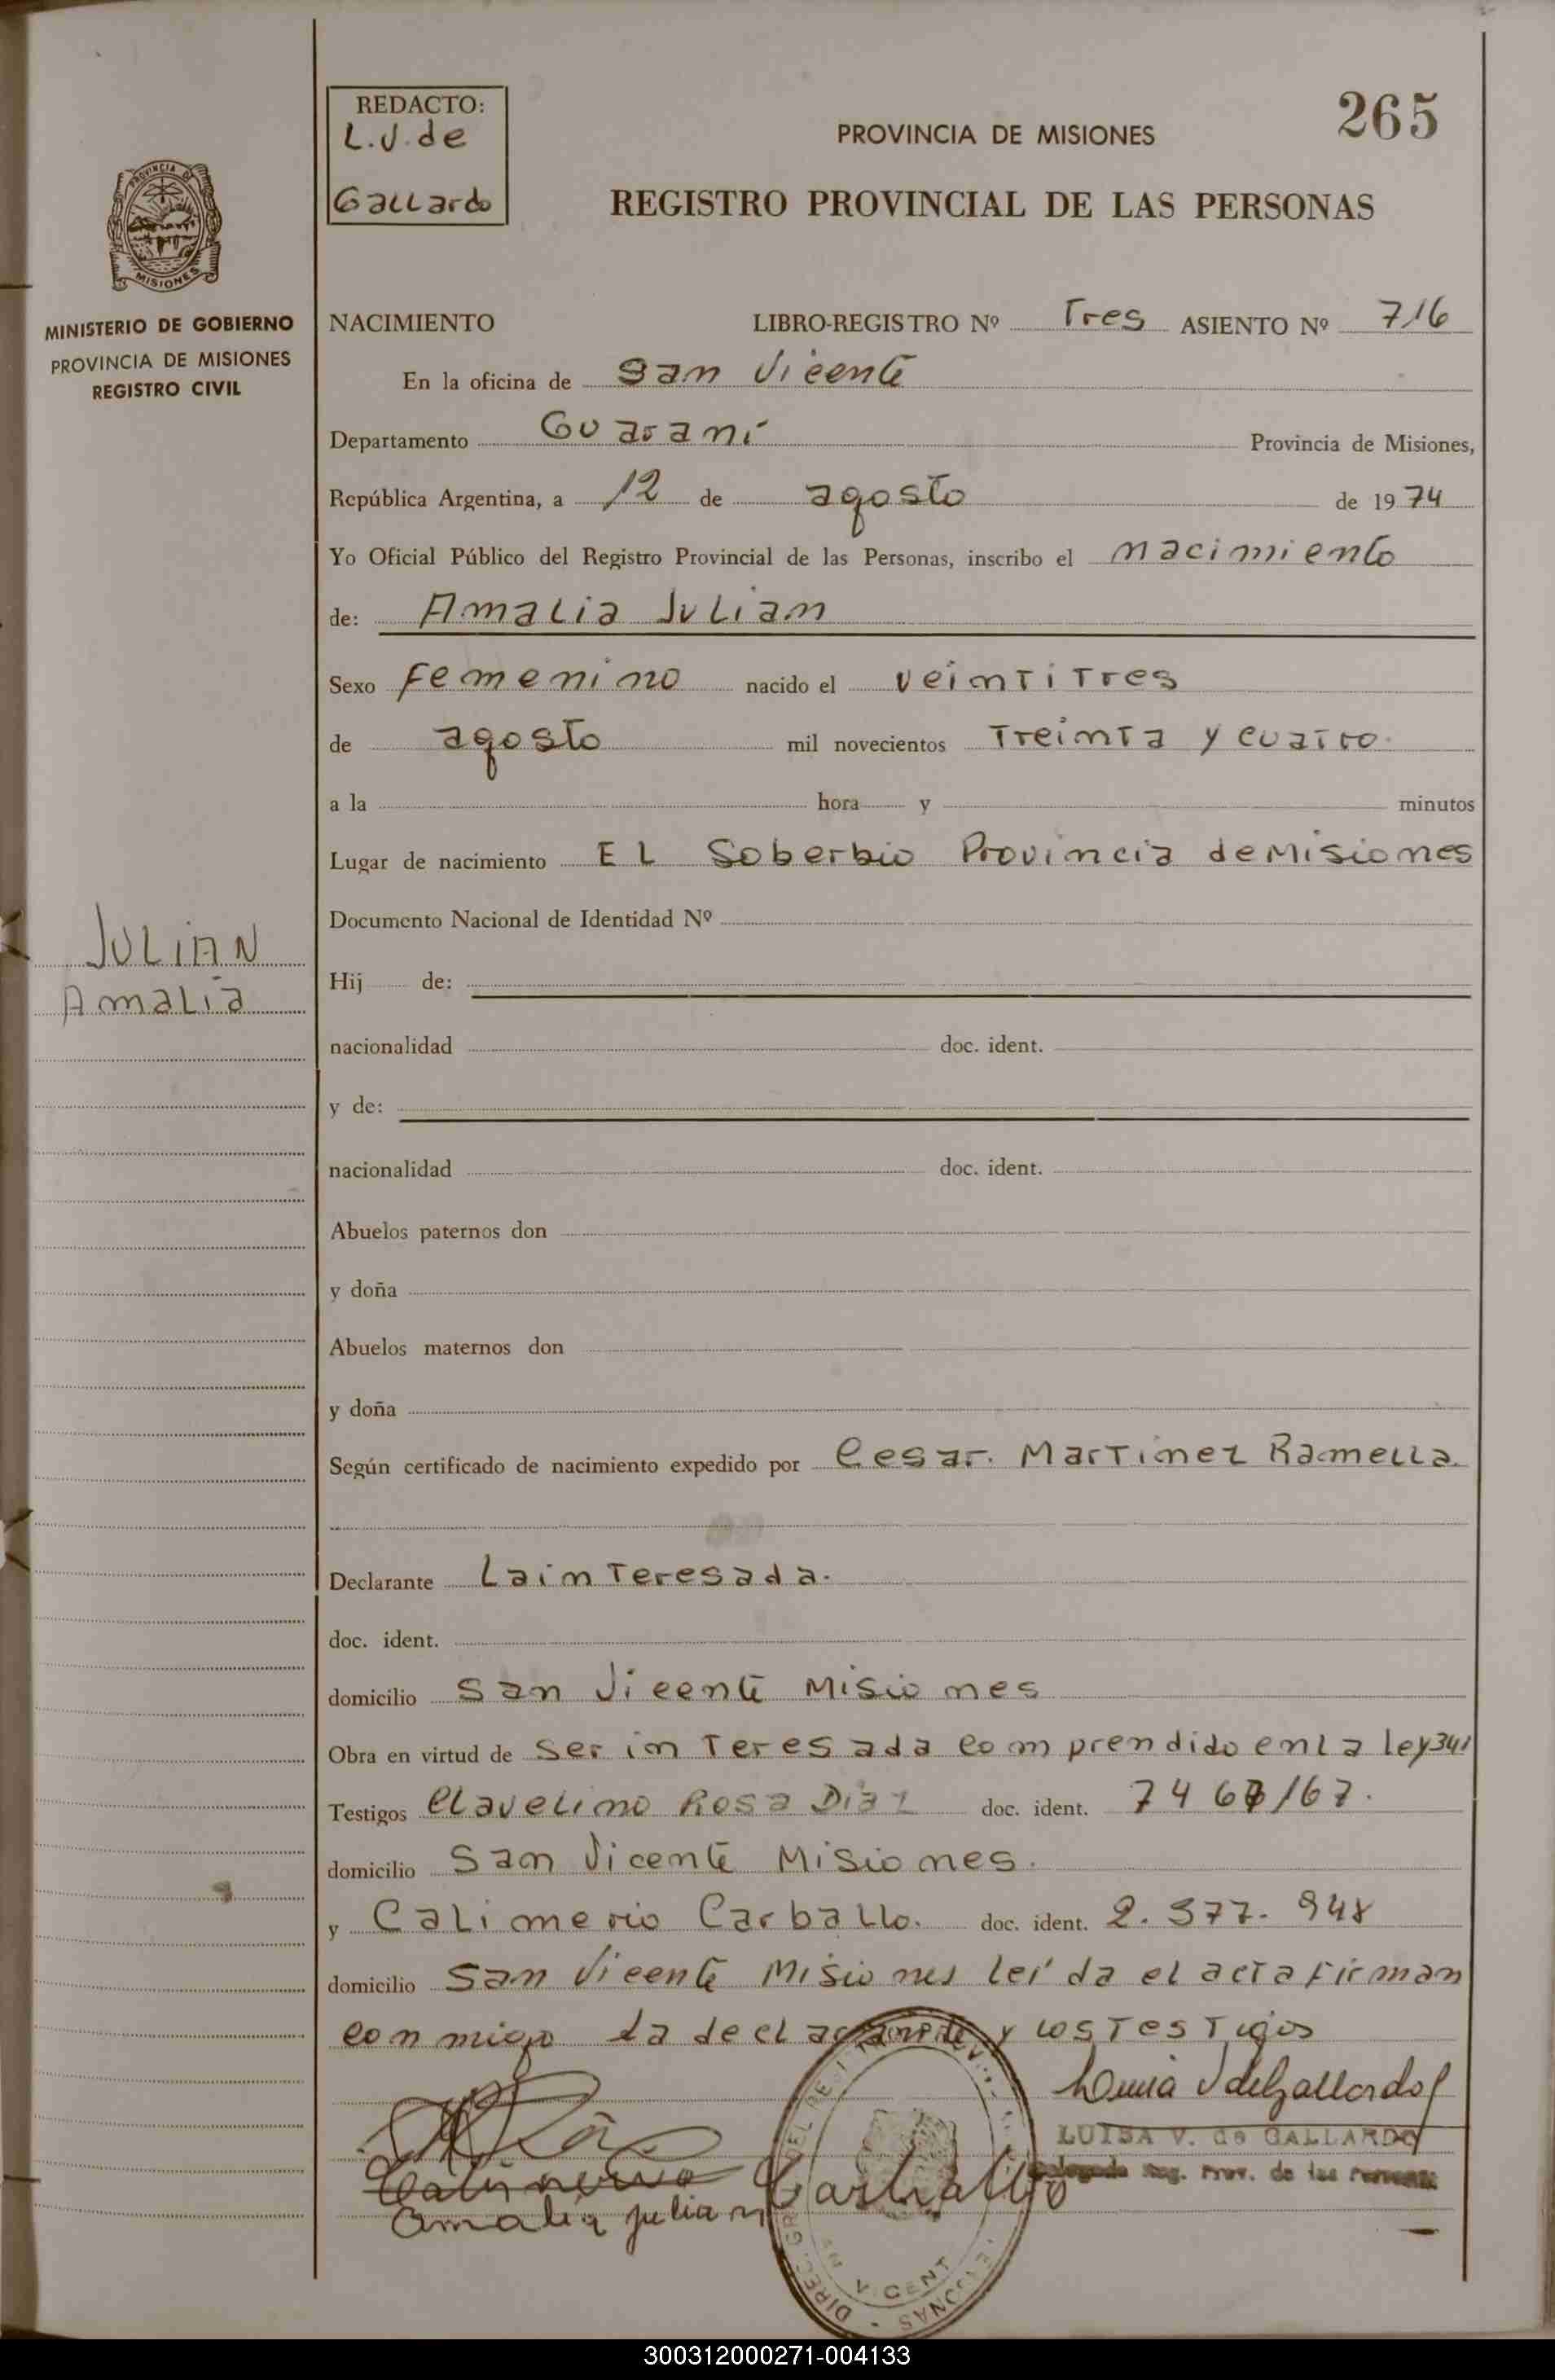 265
REDACTO:
L.V. de
Gallardo
PROVINCIA DE MISIONES
REGISTRO PROVINCIAL DE LAS PERSONAS
PROVINCIA DE
MISIONES
MINISTERIO DE GOBIERNO
PROVINCIA DE MISIONES
REGISTRO CIVIL
NACIMIENTO LIBRO-REGISTRO Nº Tres ASIENTO Nº 716
En la oficina de San Vicente
Departamento Guaraní Provincia de Misiones,
República Argentina, a 12 de agosto de 1974
Yo Oficial Público del Registro Provincial de las Personas, inscribo el nacimiento
de: Amalia Julian
Sexo Femenino nacido el veintitres
de agosto mil novecientos Treinta y cuatro.
a la hora y minutos
Lugar de nacimiento EL Soberbio Provincia de Misiones
Documento Nacional de Identidad Nº
JULIAN
Amalia
Hij de:
nacionalidad doc. ident.
y de:
nacionalidad doc. ident.
Abuelos paternos don
y doña
Abuelos maternos don
y doña
Según certificado de nacimiento expedido por Cesar. Martinez Ramella.
Declarante La interesada.
doc. ident.
domicilio San Vicente Misiones
Obra en virtud de ser interesada comprendido en la ley 341
Testigos Clavelino Rosa Diaz doc. ident.
domicilio San Vicente Misiones.
y Calimerio Carballo. doc. ident. 2. 377. 948
domicilio San Vicente Misiones leída el acta firman
conmigo la declarante y los testigos
Luisa V de Gallardo
LUISA V. de GALLARDO
Delegada Reg. Prov. de las Personas
Calimerio Carballo
Amalia Julian
300312000271-004133